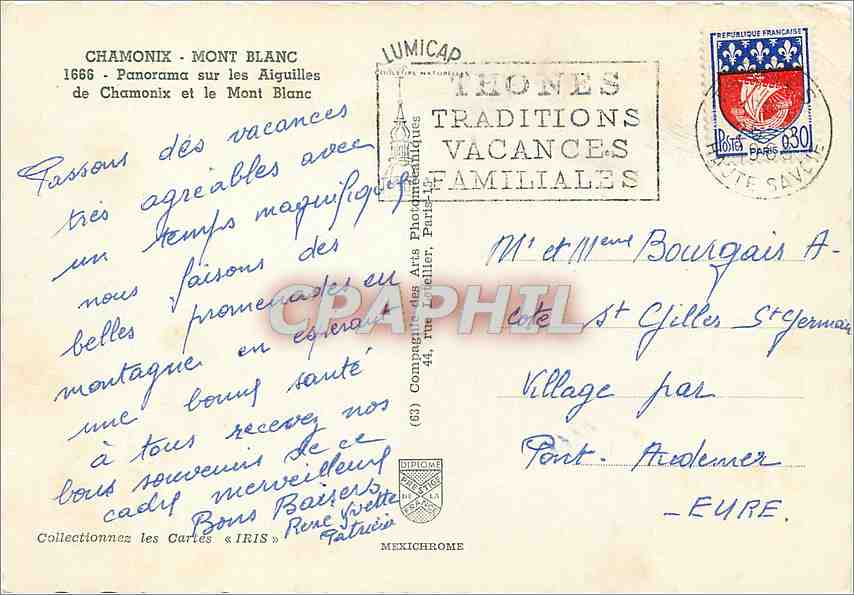 CHAMONIX - MONT BLANC
1666 - Panorama sur les Aiguilles
de Chamonix et le Mont Blanc
Passons des vacances
très agréables avec
un temps magnifique
nous faisons des
belles promenades en
montagne en espérant
une bonne santé
à tous recevez nos
bons souvenirs de ce
cadre merveilleux
Bons Baisers
René Yvette
Patricia
Collectionnez les Cartes « IRIS »
LUMICAP
COULEURS NATURELLES
THONES
TRADITIONS
VACANCES
FAMILIALES
REPUBLIQUE FRANÇAISE
POSTES 0,30
PARIS
HAUTE SAVOIE
(63) Compagnie des Arts Photomécaniques
44, rue Letellier, Paris-15
CPAPHIL
Mr et Mme Bourgais A-
Cote St Gilles St Germain
Village par
Pont-Audemer
-EURE.
DIPLOME
PRESTIGE
DE LA
FRANCE
MEXICHROME